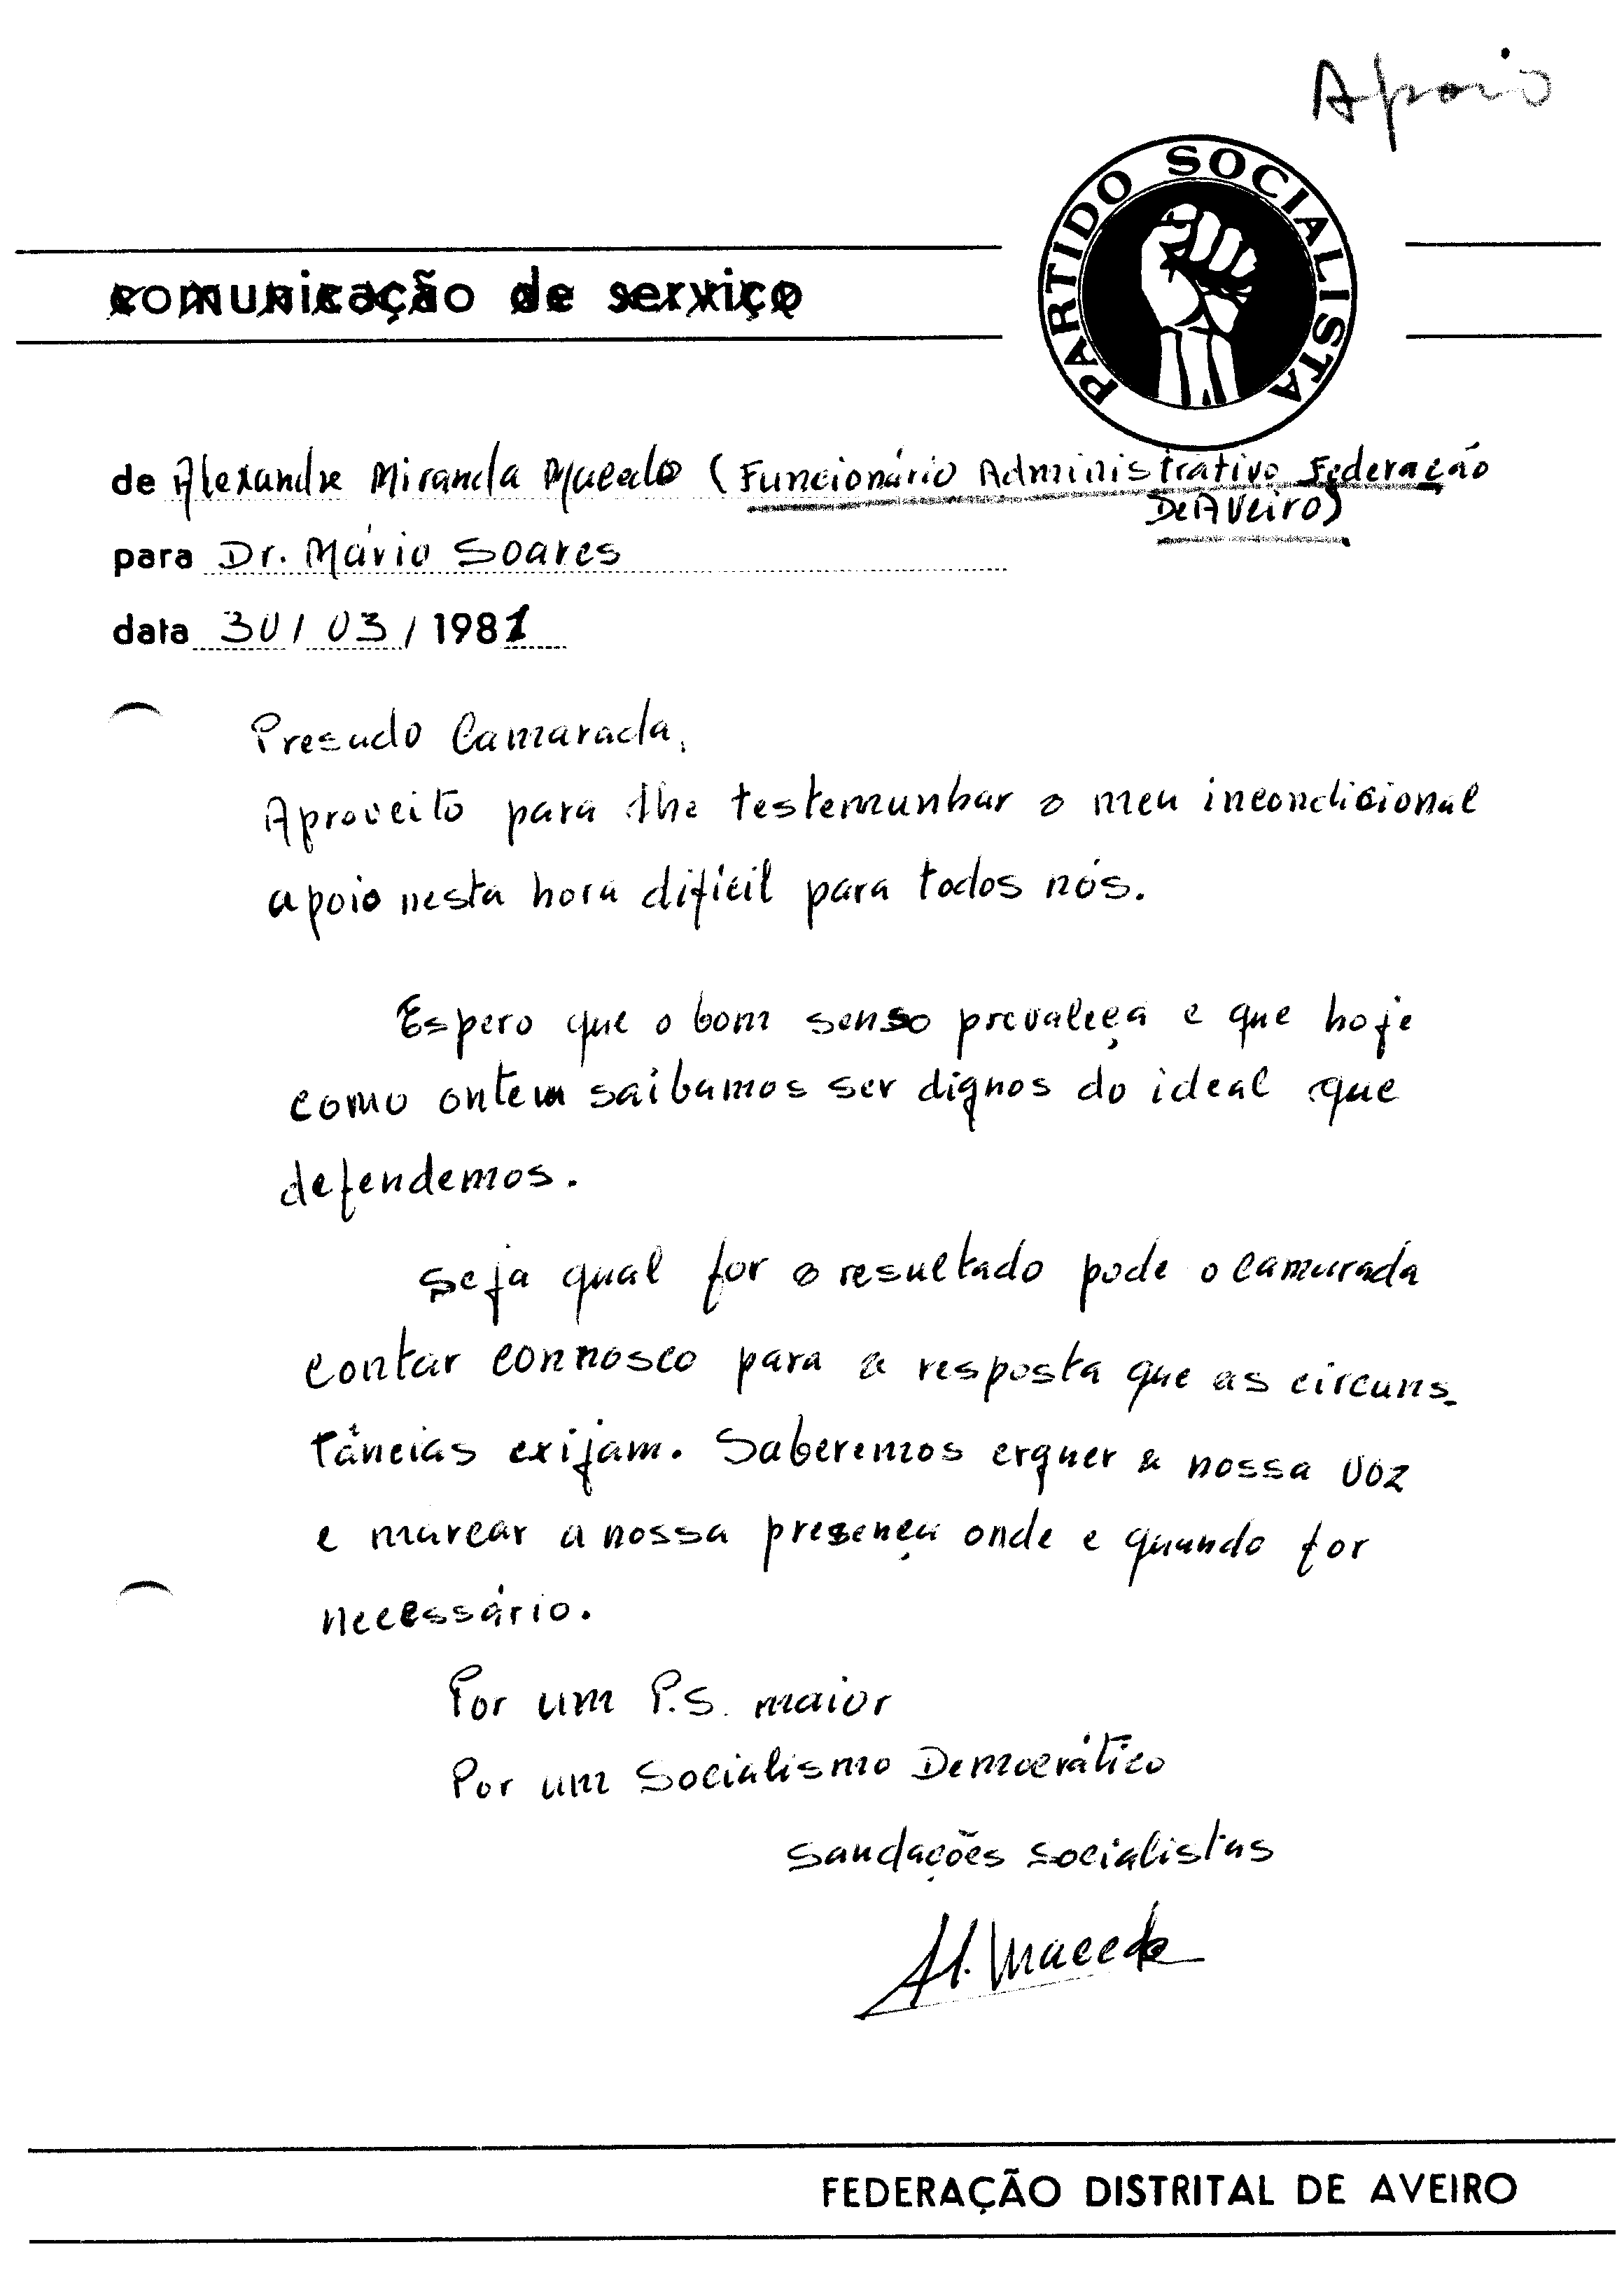 Apoio
PARTIDO SOCIALISTA
comunicação de serviço
de Alexandre Miranda Macedo (Funcionário Administrativo Federação
De Aveiro)
para Dr. Mário Soares
data 30/03/1981
Presado Camarada,
Aproveito para lhe testemunhar o meu incondicional
apoio nesta hora difícil para todos nós.
Espero que o bom senso prevaleça e que hoje
como ontem saibamos ser dignos do ideal que
defendemos.
Seja qual for o resultado pode o camarada
contar connosco para a resposta que as circuns-
tâncias exijam. Saberemos erguer a nossa voz
e marcar a nossa presença onde e quando for
necessário.
Por um P.S. maior
Por um Socialismo Democrático
Saudações Socialistas
Al. Macedo
FEDERAÇÃO DISTRITAL DE AVEIRO